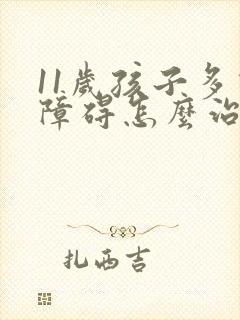 11歲孩子多
障碍怎麼治
扎西吉